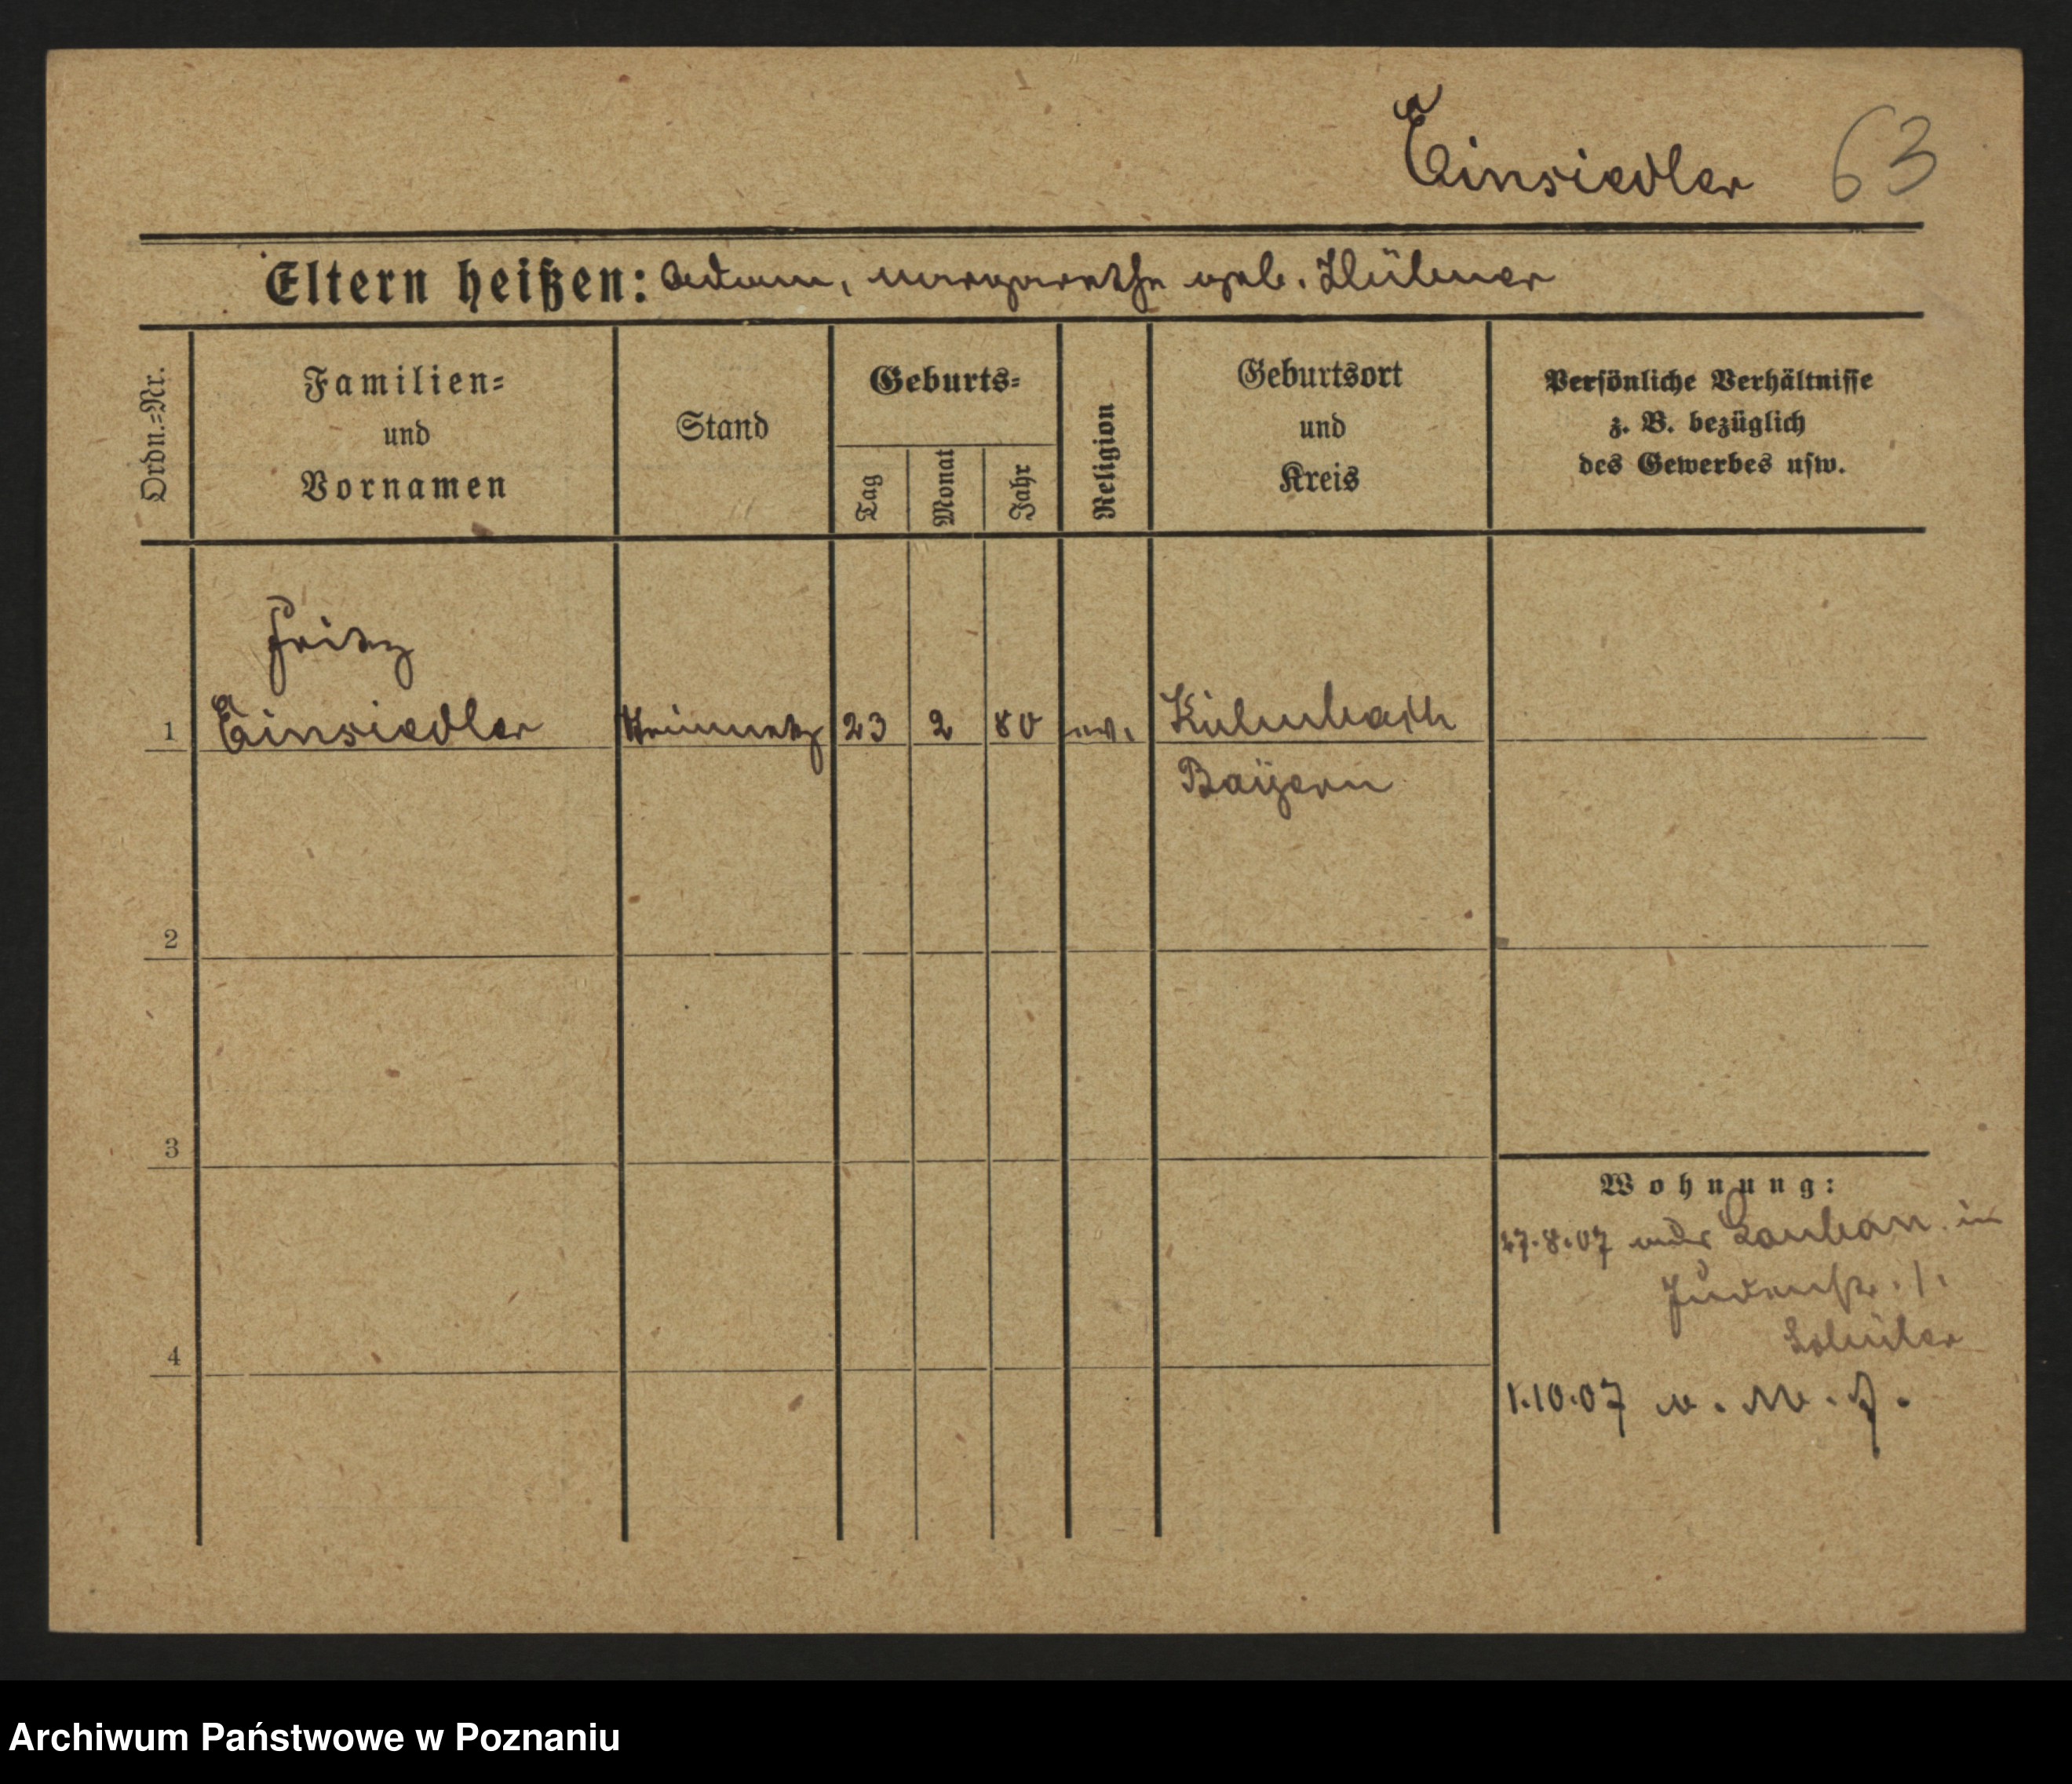 Einsiedler 63
Eltern heißen: Adam, Margarethe geb. Hübner
Ordn.=Nr.
Familien=
und
Vornamen
Stand
Geburts=
Tag
Monat
Jahr
Religion
Geburtsort
und
Kreis
Persönliche Verhältnisse
z. B. bezüglich
des Gewerbes usw.
Fritz
1 Einsiedler 23 2 80 ev. Kulmbach
Bayern
2
3
Wohnung:
27.8.07 Lauban in
Judenstr. 1.
Schüler
4
1.10.07
Archiwum Państwowe w Poznaniu